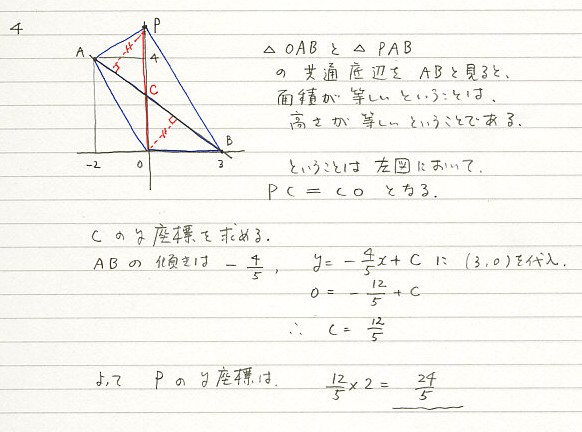 4
P
A
4
H
H
C
B
-2
0
3
△OABと△PAB
の共通底辺をABと見ると、
面積が等しいということは、
高さが等しいということである.
ということは左図において.
PC = CO となる.
Cのy座標を求める.
ABの傾きは -4/5, y=-4/5x+C に (3,0)を代入.
0 = -12/5 + C
∴ C = 12/5
よって Pのy座標は. 12/5×2 = 24/5